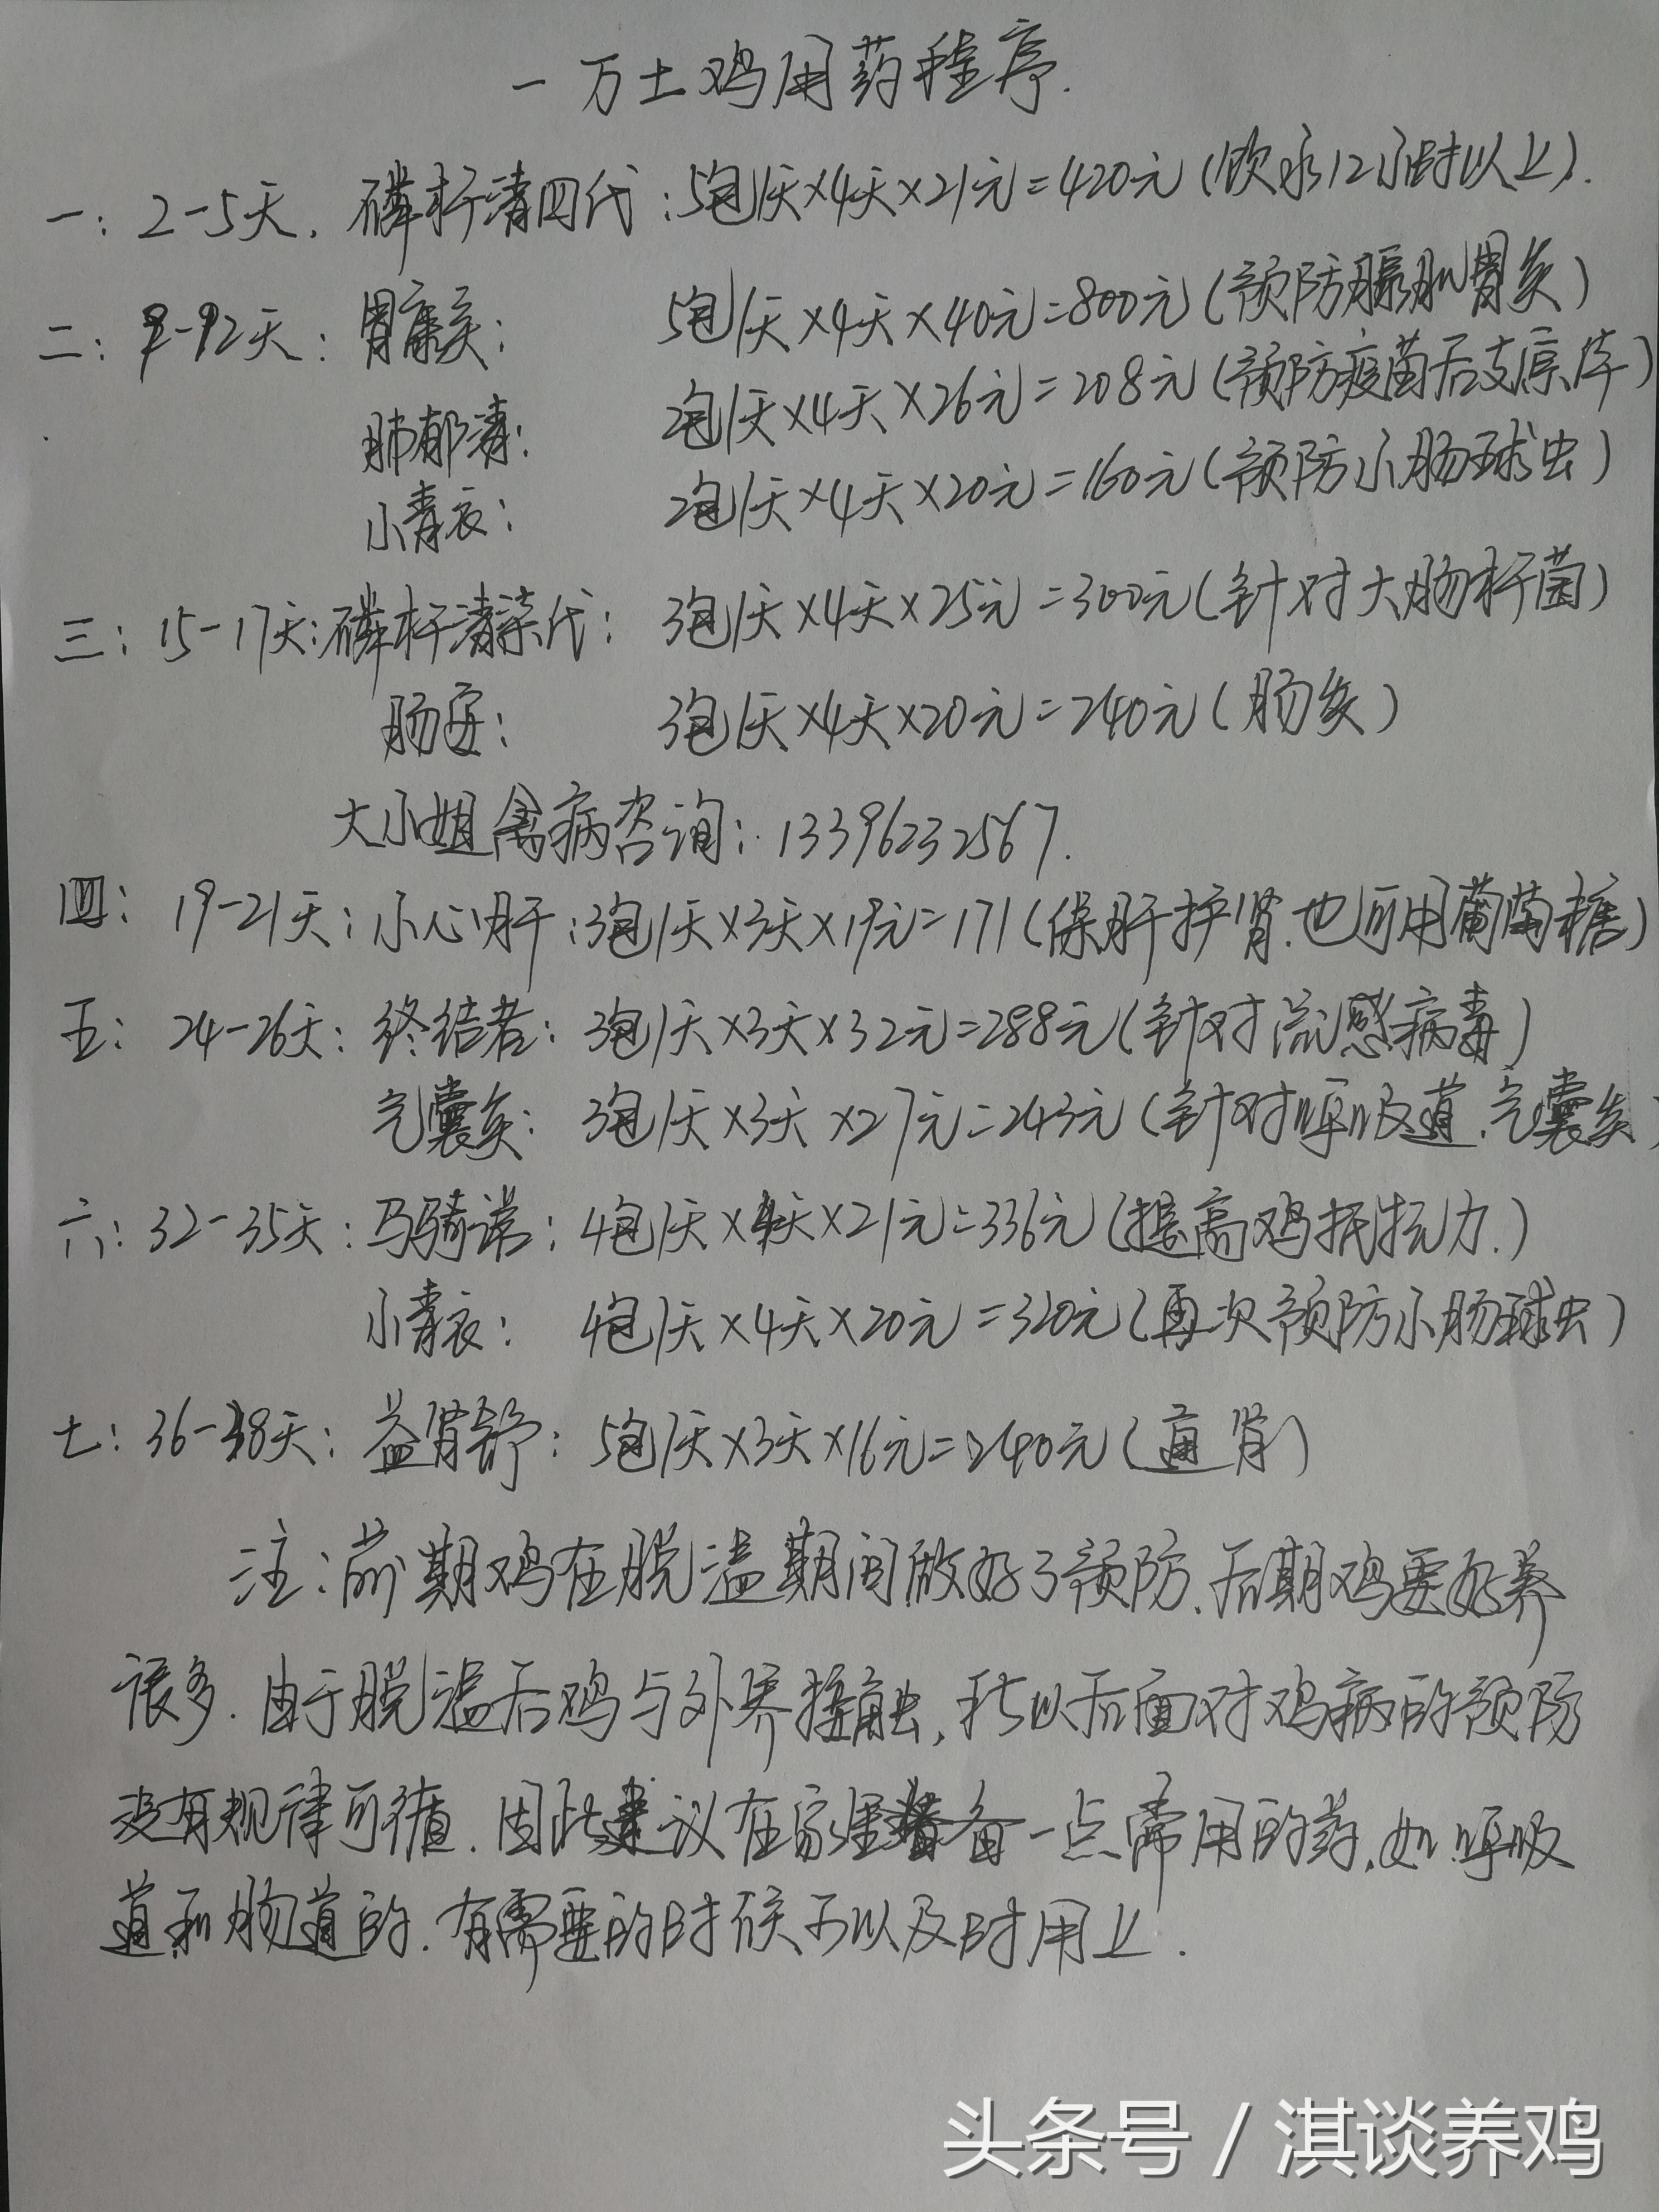 一万土鸡用药程序.
一: 2-5天. 磷杆清四代: 5包/天×4天×21元=420元(饮水12小时以上).
二: 9-12天: 胃康灸: 5包/天×4天×40元=800元(预防腺肌胃炎)
肺郁清: 2包/天×4天×26元=208元(预防疫苗后支原体)
小青衣: 2包/天×4天×20元=160元(预防小肠球虫)
三: 15-17天: 磷杆清 代: 3包/天×4天×25元=300元(针对大肠杆菌)
肠安: 3包/天×4天×20元=240元(肠炎)
大小姐禽病咨询: 13396232567.
四: 19-21天: 小心肝: 3包/天×3天×19元=171(保肝护肾.也可用葡萄糖)
五: 24-26天: 终结者: 3包/天×3天×32元=288元(针对流感病毒)
气囊炎: 3包/天×3天×27元=243元(针对呼吸道.气囊炎)
六: 32-35天: 马骑诺: 4包/天×4天×21元=336元(提高鸡抵抗力.)
小青衣: 4包/天×4天×20元=320元(再次预防小肠球虫)
七: 36-38天: 益肾舒: 5包/天×3天×16元=240元(通肾)
注: 前期鸡在脱温期间做好了预防.后期鸡要好养
很多.由于脱温后鸡与外界接触,所以后面对鸡病的预防
没有规律可循.因此建议在家里备一点常用的药.如呼吸
道和肠道的.有需要的时候可以及时用上.
头条号 / 淇谈养鸡